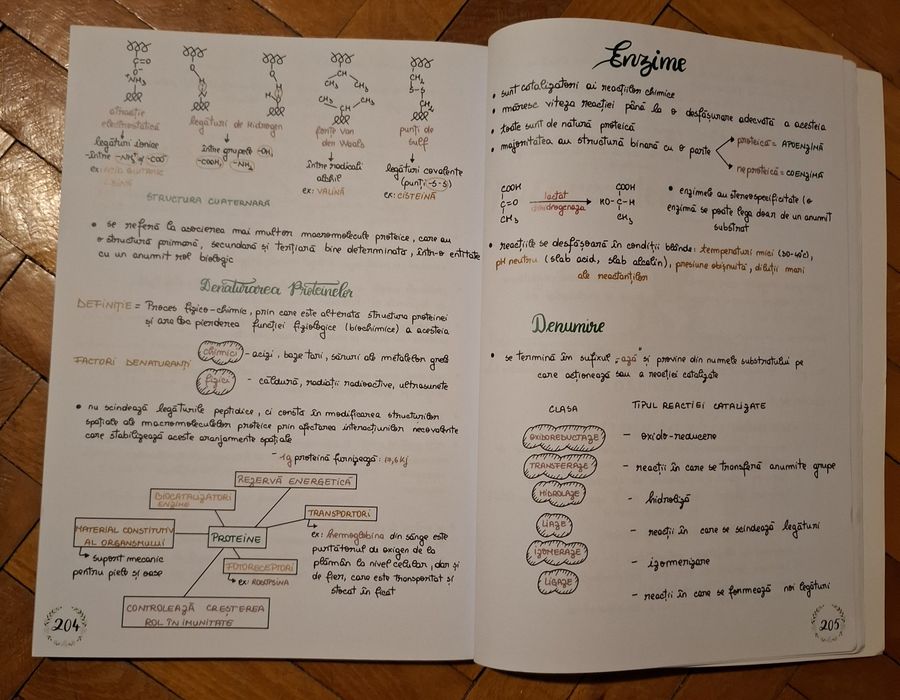 C=O
O⁻
⁺NH₃
O
H
O
O
H
O
H
CH
CH₃ CH₃
CH₃ CH₃
CH
CH₂
S
S
CH₂
atracție
electrostatică
legături ionice
-între -NH₃⁺ și -COO⁻
ex: ACID GLUTAMIC
LISINĂ
legături de hidrogen
între grupele -OH,
-COOH, -NH₂
forțe Van
den Waals
între radicali
alchil
ex: VALINĂ
punți de
sulf
legături covalente
(punți -S-S)
ex: CISTEINĂ
STRUCTURA CUATERNARĂ
• se referă la asocierea mai multor macromolecule proteice, care au
o structură primară, secundară și terțiară bine determinată, într-o entitate
cu un anumit rol biologic
Denaturarea Proteinelor
DEFINIȚIE = Proces fizico-chimic, prin care este alterată structura proteinei
și are loc pierderea funcției fiziologice (biochimice) a acesteia
FACTORI DENATURANȚI
chimici - acizi, baze tari, săruri ale metalelor grele
fizici - căldură, radiații radioactive, ultrasunete
• nu scindează legăturile peptidice, ci constă în modificarea structurilor
spațiale ale macromoleculelor proteice prin afectarea interacțiunilor necovalente
care stabilizează aceste aranjamente spațiale
- 1g proteină furnizează: 17,6 kj
REZERVĂ ENERGETICĂ
BIOCATALIZATORI
ENZIME
TRANSPORTORI
ex: hemoglobina din sânge este
purtătorul de oxigen de la
plămân la nivel celular, dar și
de fier, care este transportat și
stocat în ficat
MATERIAL CONSTITUTIV
AL ORGANSMULUI
suport mecanic
pentru piele și oase
PROTEINE
FOTORECEPTORI
ex: RODOPSINA
CONTROLEAZĂ CREȘTEREA
ROL ÎN IMUNITATE
204
Enzime
• sunt catalizatorii ai reacțiilor chimice
• măresc viteza reacției până la o desfășurare adecvată a acesteia
• toate sunt de natură proteică
• majoritatea au structură binară cu o parte
proteică = APOENZIMĂ
neproteică = COENZIMĂ
COOH
C=O
CH₃
lactat
dehidrogenaza
COOH
HO-C-H
CH₃
• enzimele au stereospecificitate (o
enzimă se poate lega doar de un anumit
substrat
• reacțiile se desfășoară în condiții blânde: temperaturi mici (30-40°C),
pH neutru (slab acid, slab alcalin), presiune obișnuită, diluții mari
ale reactanților
Denumire
• se termină în sufixul „-ază" și provine din numele substratului pe
care acționează sau a reacției catalizate
CLASA TIPUL REACTIEI CATALIZATE
OXIDOREDUCTAZE - oxido-reducere
TRANSFERAZE - reacții în care se transferă anumite grupe
HIDROLAZE - hidroliză
LIAZE - reacții în care se scindează legături
IZOMERAZE - izomerizare
LIGAZE - reacții în care se formează noi legături
205